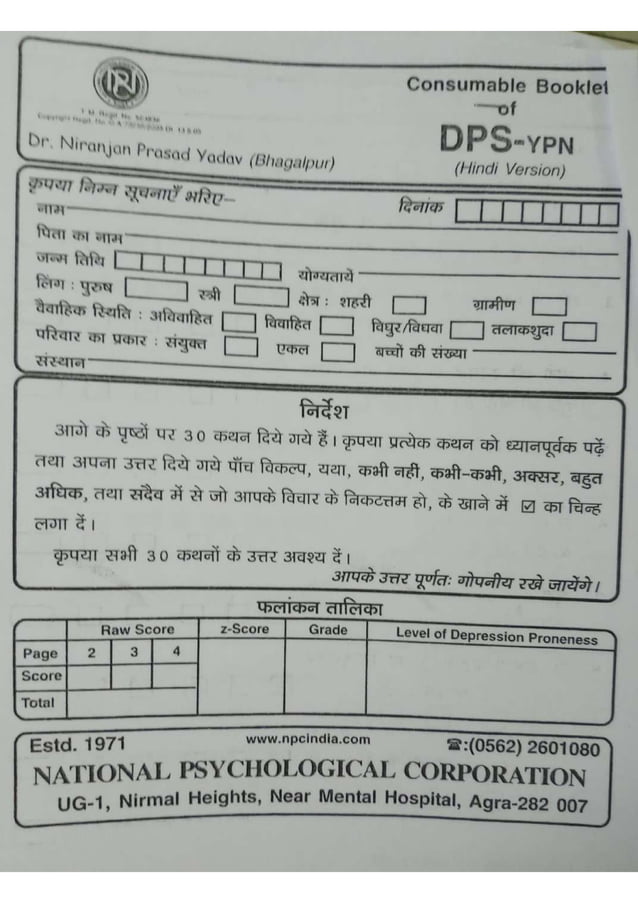 Consumable Booklet
of
DPS-YPN
(Hindi Version)
T. M. Regd. No.
Copyright Regd. No.
Dr. Niranjan Prasad Yadav (Bhagalpur)
कृपया निम्न सूचनाएँ भरिए–
नाम दिनांक
पिता का नाम
जन्म तिथि योग्यतायें
लिंग : पुरुष स्त्री क्षेत्र : शहरी ग्रामीण
वैवाहिक स्थिति : अविवाहित विवाहित विधुर/विधवा तलाकशुदा
परिवार का प्रकार : संयुक्त एकल बच्चों की संख्या
संस्थान
निर्देश
आगे के पृष्ठों पर 30 कथन दिये गये हैं। कृपया प्रत्येक कथन को ध्यानपूर्वक पढ़ें
तथा अपना उत्तर दिये गये पाँच विकल्प, यथा, कभी नहीं, कभी-कभी, अक्सर, बहुत
अधिक, तथा सदैव में से जो आपके विचार के निकटत्तम हो, के खाने में ☑ का चिन्ह
लगा दें।
कृपया सभी 30 कथनों के उत्तर अवश्य दें।
आपके उत्तर पूर्णतः गोपनीय रखे जायेंगे।
फलांकन तालिका
Raw Score z-Score Grade Level of Depression Proneness
Page 2 3 4
Score
Total
Estd. 1971 www.npcindia.com ☎:(0562) 2601080
NATIONAL PSYCHOLOGICAL CORPORATION
UG-1, Nirmal Heights, Near Mental Hospital, Agra-282 007